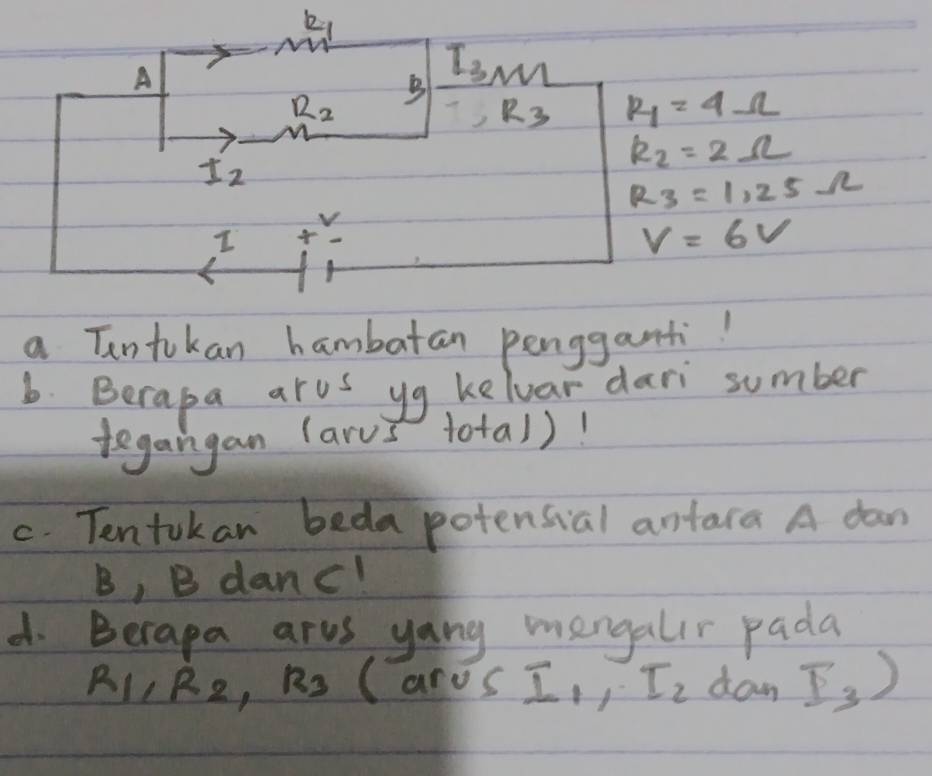 R1
A
I3
B
R2
R3
I2
I
V
+ -
R1 = 4 Ω
R2 = 2 Ω
R3 = 1,25 Ω
V = 6V
a Tentukan hambatan pengganti!
b. Berapa arus yg keluar dari sumber
tegangan (arus total)!
c. Tentukan beda potensial antara A dan
B, B dan C!
d. Berapa arus yang mengalir pada
R1, R2, R3 (arus I1, I2 dan I3)